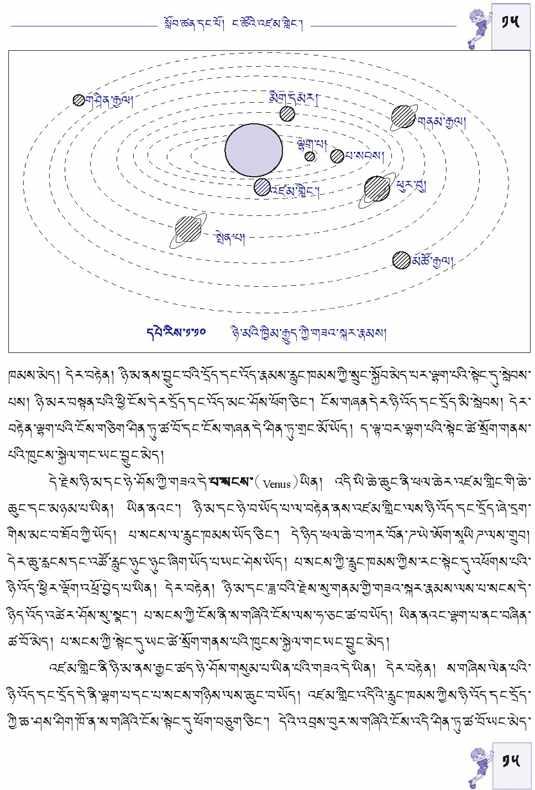 སློབ་ཚན་དང་པོ། ང་ཚོའི་འཛམ་གླིང་།
༡༥
གཤིན་རྒྱལ།
མིག་དམར།
གནམ་རྒྱལ།
ལྷག་པ།
པ་སངས།
འཛམ་གླིང་།
ཕུར་བུ།
སྤེན་པ།
མཚོ་རྒྱལ།
དཔེ་རིས་༡་༡༠ ཉི་མའི་ཁྱིམ་རྒྱུད་ཀྱི་གཟའ་སྐར་རྣམས།
ཁམས་མེད། དེར་བརྟེན། ཉི་མ་ནས་བྱུང་བའི་དྲོད་དང་འོད་རྣམས་རླུང་ཁམས་ཀྱི་སྲུང་སྐྱོབ་མེད་པར་ལྷག་པའི་སྟེང་དུ་སླེབས་
པས། ཉི་མར་བསྟན་པའི་ཕྱི་ངོས་དེར་དྲོད་དང་འོད་མང་ཤོས་ཕོག་ཅིང་། ངོས་གཞན་དེར་ཉི་འོད་དང་དྲོད་མི་སླེབས། དེར་
བརྟེན་ལྷག་པའི་ངོས་གཅིག་ཤིན་ཏུ་ཚ་བོ་དང་ངོས་གཞན་དེ་ཤིན་ཏུ་གྲང་མོ་ཡོད། ད་ལྟ་བར་ལྷག་པའི་སྟེང་ཚེ་སྲོག་གནས་
པའི་ཁུངས་སྐྱེལ་གང་ཡང་བྱུང་མེད།
དེ་རྗེས་ཉི་མ་དང་ཉེ་ཤོས་ཀྱི་གཟའ་དེ་པ་སངས་(Venus)ཡིན། འདི་ཡི་ཆེ་ཆུང་ནི་ཕལ་ཆེར་འཛམ་གླིང་གི་ཆེ་
ཆུང་དང་མཉམ་པ་ཡིན། ཡིན་ནའང་། ཉི་མ་དང་ཉེ་བ་ཡོད་པ་ལ་བརྟེན་ནས་འཛམ་གླིང་ལས་ཉི་འོད་དང་དྲོད་ཞེ་དྲག་
གིས་མང་བ་ཐོབ་ཀྱི་ཡོད། པ་སངས་ལ་རླུང་ཁམས་ཡོད་ཅིང་། དེ་ཉིད་ཕལ་ཆེ་བ་ཀར་བོན་ཌ་ཡེ་ཨོག་སཱཡི་ཌ་ལས་གྲུབ།
དེར་ཆུ་རླངས་དང་འཚོ་རླུང་ཉུང་ཉུང་ཞིག་ཡོད་པ་ཡང་ཤེས་ཡོད། པ་སངས་ཀྱི་རླུང་ཁམས་ཀྱིས་རང་སྟེང་དུ་འཕོགས་པའི་
ཉི་འོད་ཕྱིར་ལྡོག་འཕྲོ་བྱེད་པ་ཡིན། དེར་བརྟེན། ཉི་མ་དང་ཟླ་བའི་རྗེས་སུ་གནམ་གྱི་གཟའ་སྐར་རྣམས་ལས་པ་སངས་དེ་
ཉིད་འོད་འཚེར་ཤོས་སུ་སྣང་། པ་སངས་ཀྱི་ངོས་ནི་ས་གཞིའི་ངོས་ལས་ཧ་ཅང་ཚ་བ་ཡོད། ཡིན་ནའང་ལྷག་པ་ནང་བཞིན་
ཚ་བོ་མེད། པ་སངས་ཀྱི་སྟེང་དུ་ཡང་ཚེ་སྲོག་གནས་པའི་ཁུངས་སྐྱེལ་གང་ཡང་བྱུང་མེད།
འཛམ་གླིང་ནི་ཉི་མ་ནས་རྒྱང་ཚད་ཉེ་ཤོས་གསུམ་པ་ཡིན་པའི་གཟའ་དེ་ཡིན། དེར་བརྟེན། ས་གཞིས་ལེན་པའི་
ཉི་འོད་དང་དྲོད་དེ་ནི་ལྷག་པ་དང་པ་སངས་གཉིས་ལས་ཆུང་བ་ཡོད། འཛམ་གླིང་འདིའི་རླུང་ཁམས་ཀྱིས་ཉི་འོད་དང་དྲོད་
ཀྱི་ཆ་ཤས་ཤིག་ཁོ་ན་ས་གཞིའི་ངོས་སྟེང་དུ་ཕོག་བཅུག་ཅིང་། དེའི་འབྲས་བུར་ས་གཞིའི་ངོས་འདི་ཤིན་ཏུ་ཚ་བོ་ཡང་མེད་
༡༥